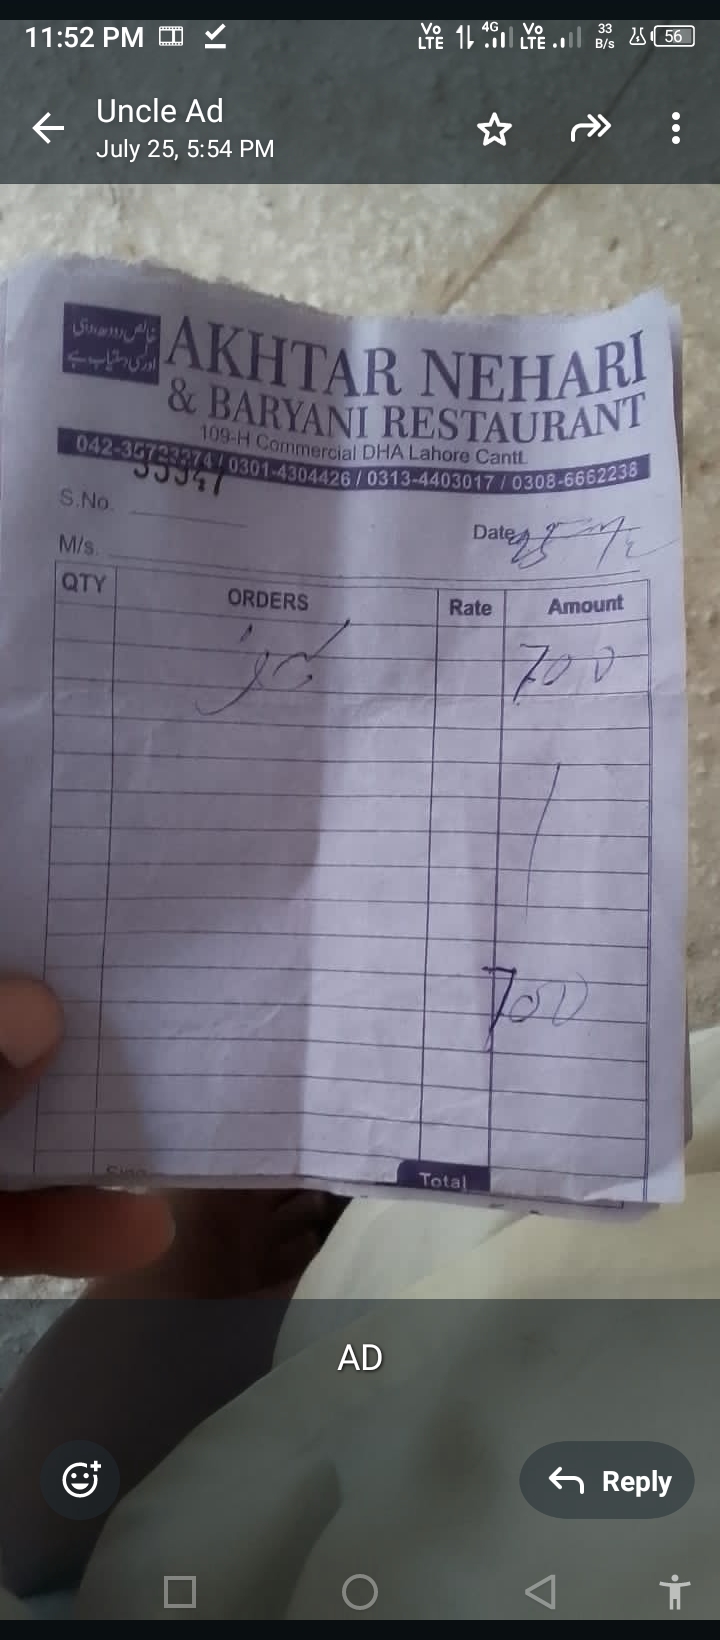 11:52 PM Vo LTE 4G Vo LTE 33 B/s 56
Uncle Ad
July 25, 5:54 PM
خالص دودھ دہی
اور لسی دستیاب ہے
AKHTAR NEHARI
& BARYANI RESTAURANT
109-H Commercial DHA Lahore Cantt.
042-35723274 / 0301-4304426 / 0313-4403017 / 0308-6662238
S.No.
Date
M/s.
QTY ORDERS Rate Amount
700
700
Sign
Total
AD
Reply